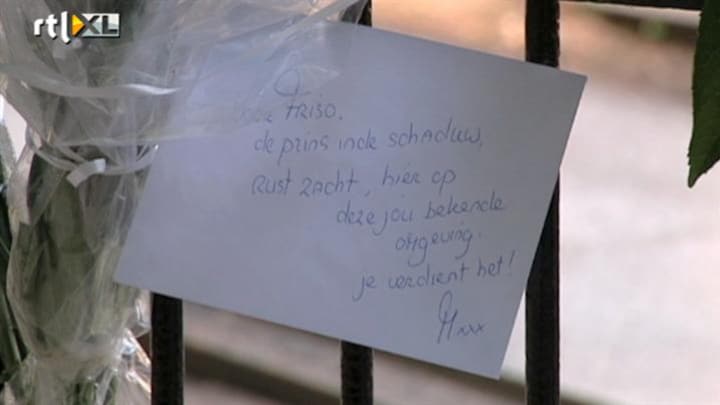 rtl XL
Voor FRISO,
de prins inde schaduw,
Rust zacht, hier op
deze jou bekende
omgeving.
je verdient het!
Mxxx